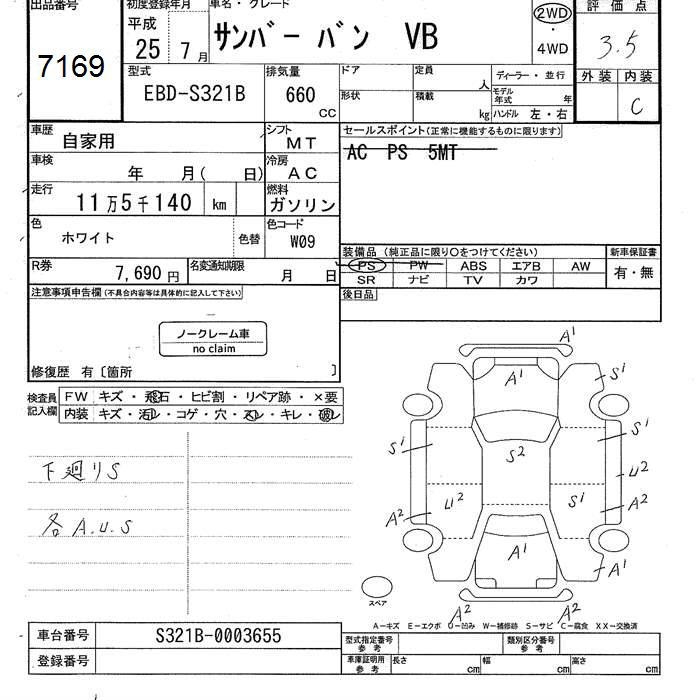 出品番号 初度登録年月 車名・グレード 評価点
7169 平成 25 7月 サンバー バン VB 2WD ・ 4WD 3.5
型式 排気量 ドア 定員 人 ディーラー・並行 外装 内装
EBD-S321B 660 CC 形状 積載 kg モデル年式 年 ハンドル 左・右 C
車歴 自家用 シフト MT セールスポイント(正常に機能するものに限ります)
車検 年 月( 日) 冷房 AC AC PS 5MT
走行 11万5千140 km 燃料 ガソリン
色 ホワイト 色替 色コード W09
装備品(純正品に限り○をつけてください) 新車保証書
R券 7,690円 名変通知期限 月 日 PS PW ABS エアB AW 有・無
SR ナビ TV カワ
注意事項申告欄(不具合内容等は具体的に記入して下さい) 後日品
ノークレーム車
no claim
修復歴 有〔箇所 〕
検査員記入欄 FW キズ・飛石・ヒビ割・リペア跡・×要
内装 キズ・汚レ・コゲ・穴・スレ・キレ・破レ
下廻りS
各A.U.S
A1
A1 S1
S1 S2 S1
U2
U2 S1 A2
A2
A1 A1
スペア A2 A2
A-キズ E-エクボ U-凹み W-補修跡 S-サビ C-腐食 XX-交換済
車台番号 S321B-0003655 型式指定番号 参考 類別区分番号 参考
登録番号 車庫証明用 参考 長さ cm 幅 cm 高さ cm